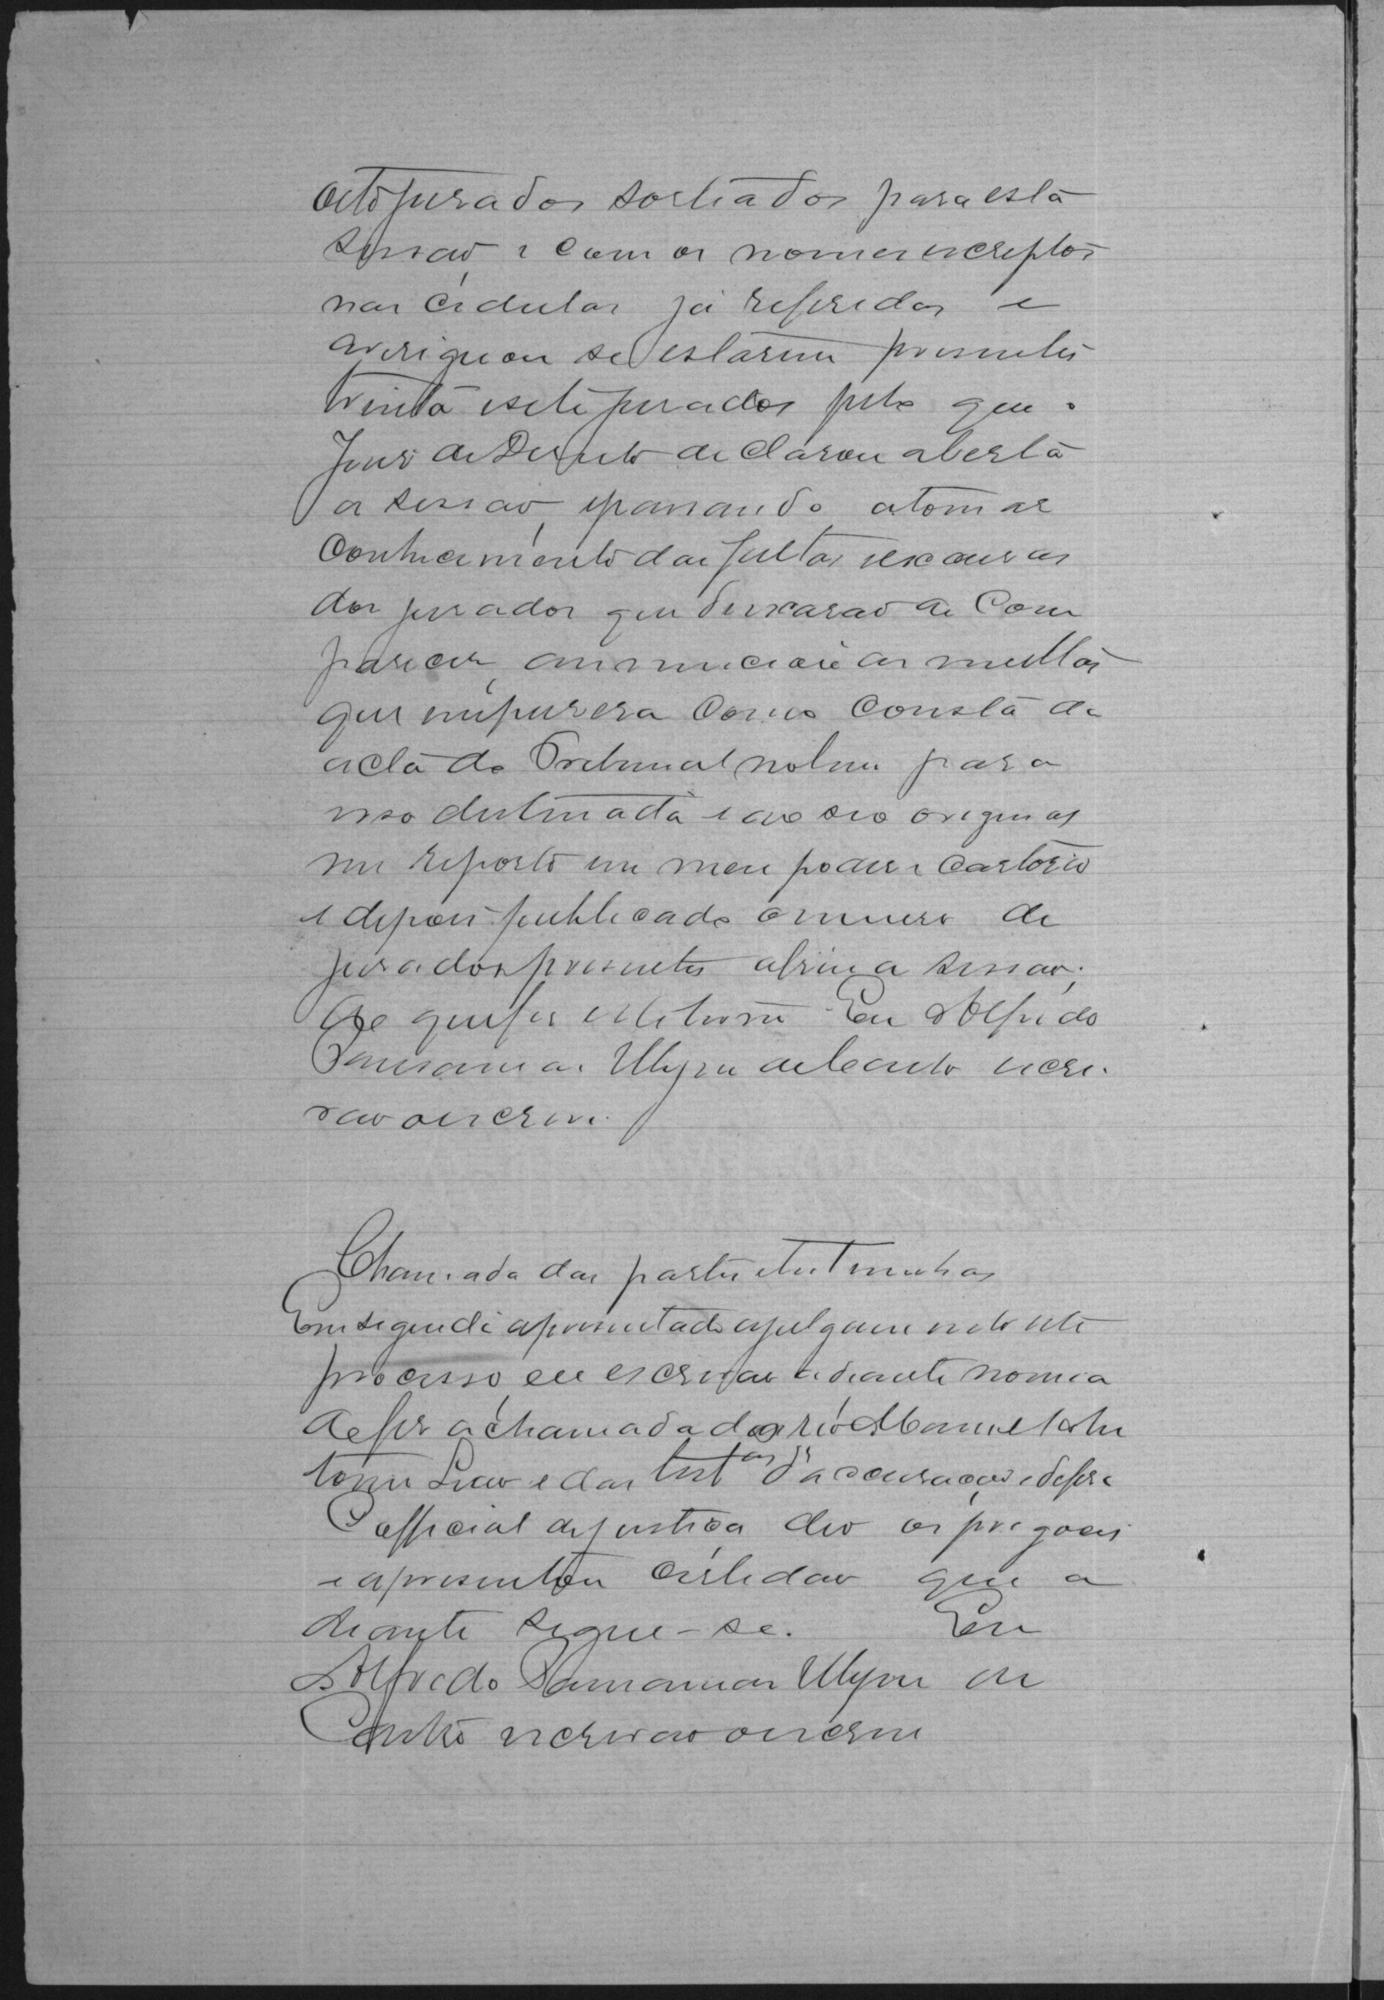 octo jurados sorteados para esta
sessão, e com os nomes escriptos
nas cedulas já referidas e
averiguou se estarem presentes
trinta e sete jurados pelo que o
Juiz de Direito declarou aberta
a sessão, e passando a tomar
conhecimento das faltas e escusas
dos jurados que deixarão de com
parecer, annunciou as multas
que impusera como consta da
acta do Tribunal no livro para
isso destinado e ao seo original
me reporto em meu poder e cartorio
e depois publicado o numero de
jurados presentes abriu a sessão;
do que fis este termo Eu Alfredo
Pausanias Ulysses de Castro escri
vão o escrevi.
Chamada das partes e testemunhas
Em seguida apresentado a julgamento este
processo, eu escrivão adiante nomea
do fis a chamada do réo Manoel
e das testas da accusação e defesa
O official de justiça deo os pregões
e apresentou certidão que a
diante segue-se. Eu
Alfredo Pausanias Ulysses de
Castro escrivão o escrevi